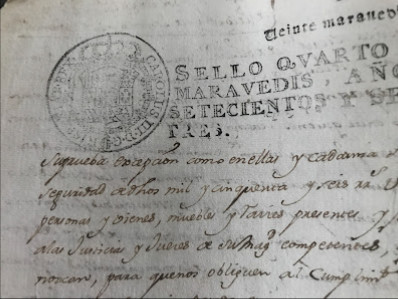 Veinte maraved
CAROLUS III D G
SELLO QVARTO
MARAVEDIS, AÑO
SETECIENTOS Y SE
TRES.
Su prueba excepcion como en ellas y cada una
seguridad de dhos mil y cinquenta y seis rs
personas y vienes, muebles y raices presentes y
a las Justicias y Jueces de su Mag competentes,
nozcan, para que nos obliguen al Cumplimto